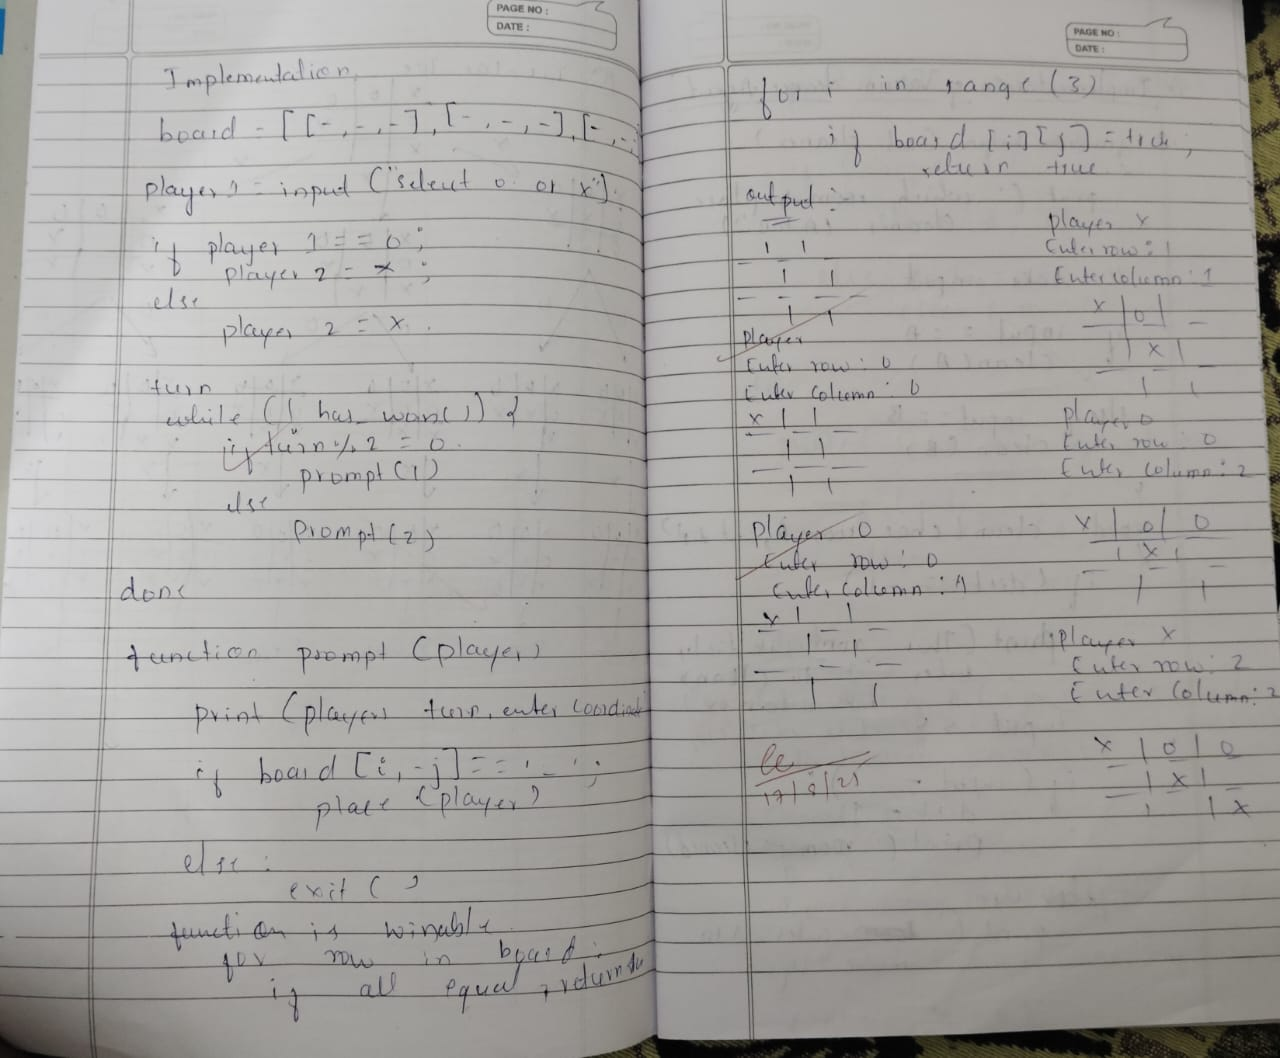 PAGE NO :
DATE :
Implementation
board = [[-,-,-],[-,-,-],[-,-
player 1 = input ("select o or x")
if player 1 == o ;
player 2 = x ;
else
player 2 = x .
turn
while (! has_won()) {
if turn % 2 = 0
prompt (1)
else
prompt (2)
done
function prompt (player)
print (players turn, enter coordinat
if board [i,-j] == '-' ;
place (player)
else :
exit ( )
function is winable
for row in board :
if all equal , return
PAGE NO :
DATE :
for i in range (3)
if board [i][j] =
return true
output :
Player
Enter row : 0
Enter column : 0
x | |
| |
| |
Player 0
Enter row : 0
Enter column : 1
x | |
| |
| |
player x
Enter row : 1
Enter column : 1
x | o |
| x |
| |
player o
Enter row : 0
Enter column : 2
x | o | o
| x |
| |
Player x
Enter row : 2
Enter column : 2
x | o | o
| x |
| | x